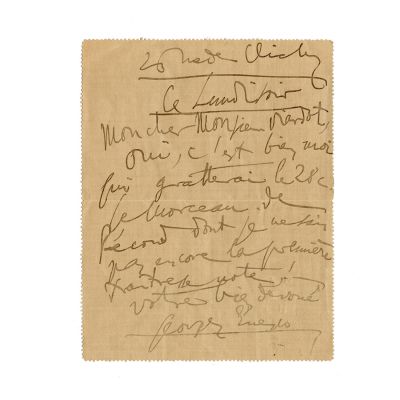 20 rue de Clichy
Ce Lundi soir
Mon cher Monsieur Viardot,
oui, c'est bien moi
qui gratterai le 28 c.
le morceau de
Pécoud dont je ne sais
pas encore la première
note !
votre bien dévoué
Georges Enesco